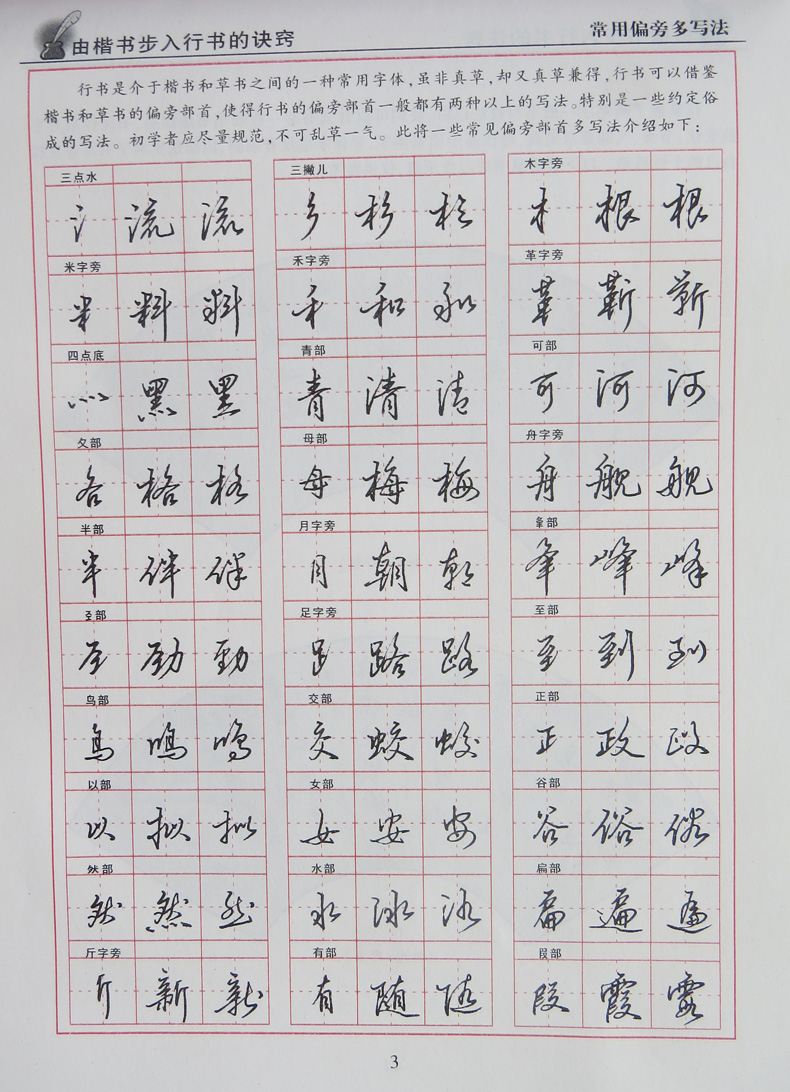 由楷书步入行书的诀窍
常用偏旁多写法
行书是介于楷书和草书之间的一种常用字体，虽非真草，却又真草兼得，行书可以借鉴
楷书和草书的偏旁部首，使得行书的偏旁部首一般都有两种以上的写法。特别是一些约定俗
成的写法。初学者应尽量规范，不可乱草一气。此将一些常见偏旁部首多写法介绍如下：
三点水 三撇儿 木字旁
氵 流 流 彡 杉 杉 木 根 根
米字旁 禾字旁 革字旁
米 料 料 禾 和 和 革 靳 靳
四点底 青部 可部
灬 黑 黑 青 清 清 可 河 河
夂部 母部 舟字旁
各 格 格 母 梅 梅 舟 舰 舰
半部 月字旁 夆部
半 伴 伴 月 朝 朝 夆 峰 峰
圣部 足字旁 至部
劲 劲 足 路 路 至 到 到
鸟部 交部 正部
鸟 鸣 鸣 交 蛟 蛟 正 政 政
以部 女部 谷部
以 拟 拟 女 安 安 谷 俗 俗
然部 水部 扁部
然 然 然 水 泳 泳 扁 遍 遍
斤字旁 有部 叚部
斤 新 新 有 随 随 叚 霞 霞
3